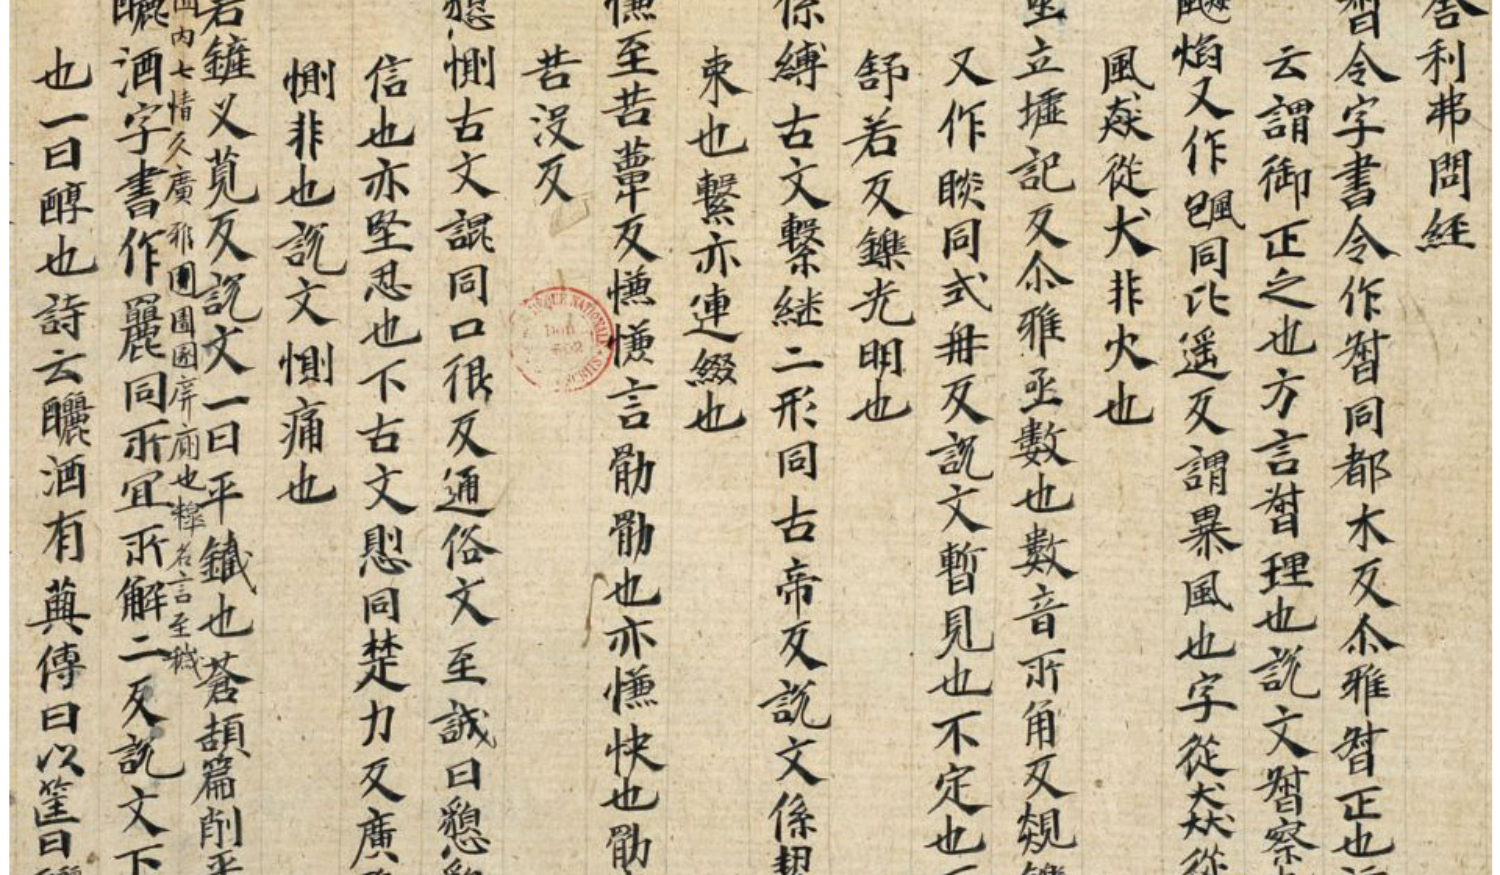 舎利弗問經
督令字書令作㫼同都木反尒雅㫼正也
云謂御正之也方言㫼理也說文㫼察
焰又作颮同比遥反謂暴風也字從猋從
風猋從犬非火也
立墟記反尒雅亟數也數音所角反覢
又作睒同式冊反說文暫見也不定也
舒若反鑠光明也
係縛古文繫継二形同古帝反說文係
束也繫亦連綴也
慊至苦蕇反慊慊言勖勖也亦慊快也勖
苦没反
懇惻古文詪同口佷反通俗文至誠曰懇
信也亦堅忍也下古文㥽同楚力反廣
惻非也說文惻痛也
若鏟义莧反說文一曰平鐵也蒼頡篇削平
内七情久廣雅圊圂圂屏廁也釋名言至穢
釃酒字書作麗同所宜所解二反說文下
也一曰醇也詩云釃酒有藇傳曰以筐曰